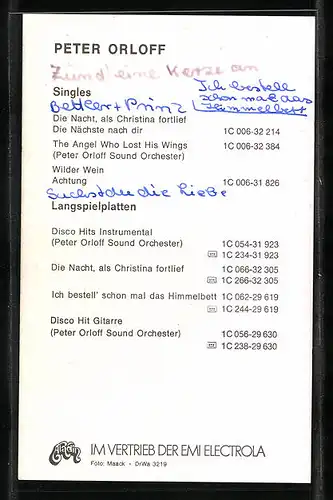 PETER ORLOFF
Zünd' eine Kerze an
Ich bestell
Singles
schon mal das
Bettler + Prinz
Himmelbett
Die Nacht, als Christina fortlief
Die Nächste nach dir 1C 006-32 214
The Angel Who Lost His Wings 1C 006-32 384
(Peter Orloff Sound Orchester)
Wilder Wein
Achtung 1C 006-31 826
Suchst du die Liebe
Langspielplatten
Disco Hits Instrumental
(Peter Orloff Sound Orchester) 1C 054-31 923
1C 234-31 923
Die Nacht, als Christina fortlief 1C 066-32 305
1C 266-32 305
Ich bestell' schon mal das Himmelbett 1C 062-29 619
1C 244-29 619
Disco Hit Gitarre
(Peter Orloff Sound Orchester) 1C 056-29 630
1C 238-29 630
Aladin IM VERTRIEB DER EMI ELECTROLA
Foto: Maack · DrWa 3219